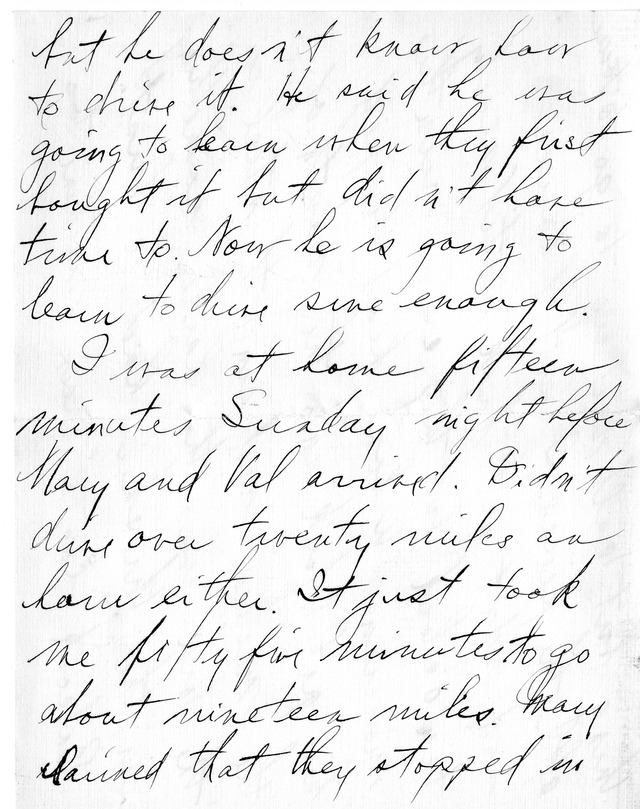 but he doesn't know how
to drive it. He said he was
going to learn when they first
bought it but didn't have
time to. Now he is going to
learn to drive sure enough.
I was at home fifteen
minutes Sunday night before
Mary and Val arrived. Didn't
drive over twenty miles an
hour either. It just took
me fifty five minutes to go
about nineteen miles. Mary
claimed that they stopped in